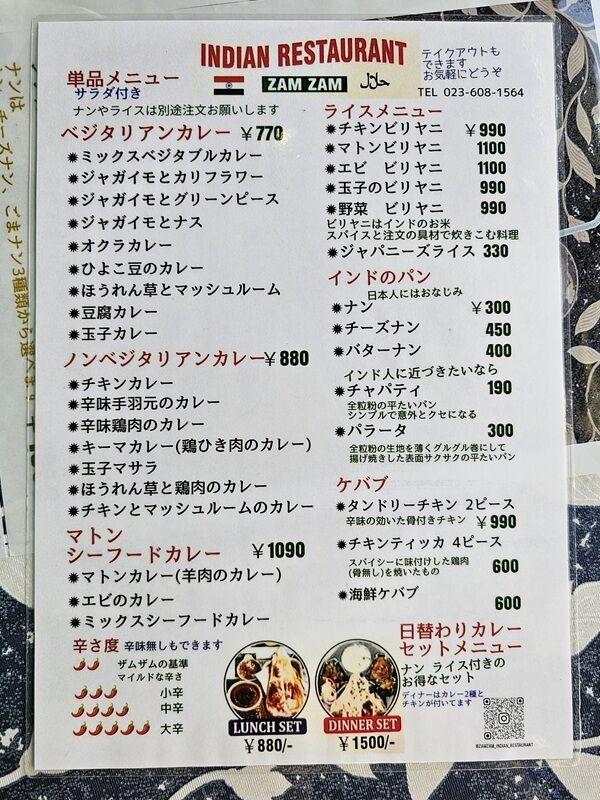 INDIAN RESTAURANT
ZAM ZAM
حلال
テイクアウトも
できます
お気軽にどうぞ
TEL 023-608-1564
単品メニュー
サラダ付き
ナンやライスは別途注文お願いします
ベジタリアンカレー ￥770
✹ミックスベジタブルカレー
✹ジャガイモとカリフラワー
✹ジャガイモとグリーンピース
✹ジャガイモとナス
✹オクラカレー
✹ひよこ豆のカレー
✹ほうれん草とマッシュルーム
✹豆腐カレー
✹玉子カレー
ノンベジタリアンカレー￥880
✹チキンカレー
✹辛味手羽元のカレー
✹辛味鶏肉のカレー
✹キーマカレー(鶏ひき肉のカレー)
✹玉子マサラ
✹ほうれん草と鶏肉のカレー
✹チキンとマッシュルームのカレー
マトン
シーフードカレー ￥1090
✹マトンカレー(羊肉のカレー)
✹エビのカレー
✹ミックスシーフードカレー
辛さ度 辛味無しもできます
ザムザムの基準
マイルドな辛さ
小辛
中辛
大辛
ライスメニュー
✹チキンビリヤニ ￥990
✹マトンビリヤニ 1100
✹エビ ビリヤニ 1100
✹玉子のビリヤニ 990
✹野菜 ビリヤニ 990
ビリヤニはインドのお米
スパイスと注文の具材で炊きこむ料理
✹ジャパニーズライス 330
インドのパン
日本人にはおなじみ
✹ナン ￥300
✹チーズナン 450
✹バターナン 400
インド人に近づきたいなら
✹チャパティ 190
全粒粉の平たいパン
シンプルで意外とクセになる
✹パラータ 300
全粒粉の生地を薄くグルグル巻にして
揚げ焼きした表面サクサクの平たいパン
ケバブ
✹タンドリーチキン 2ピース
辛味の効いた骨付きチキン ￥990
✹チキンティッカ 4ピース
スパイシーに味付けした鶏肉
(骨無し)を焼いたもの 600
✹海鮮ケバブ
600
日替わりカレー
セットメニュー
ナン ライス付きの
お得なセット
ディナーはカレー2種と
チキンが付いてます
LUNCH SET
￥880/-
DINNER SET
￥1500/-
@ZAMZAM_INDIAN_RESTAURANT
ナンは
チーズナン、ごまナン3種類から選べます